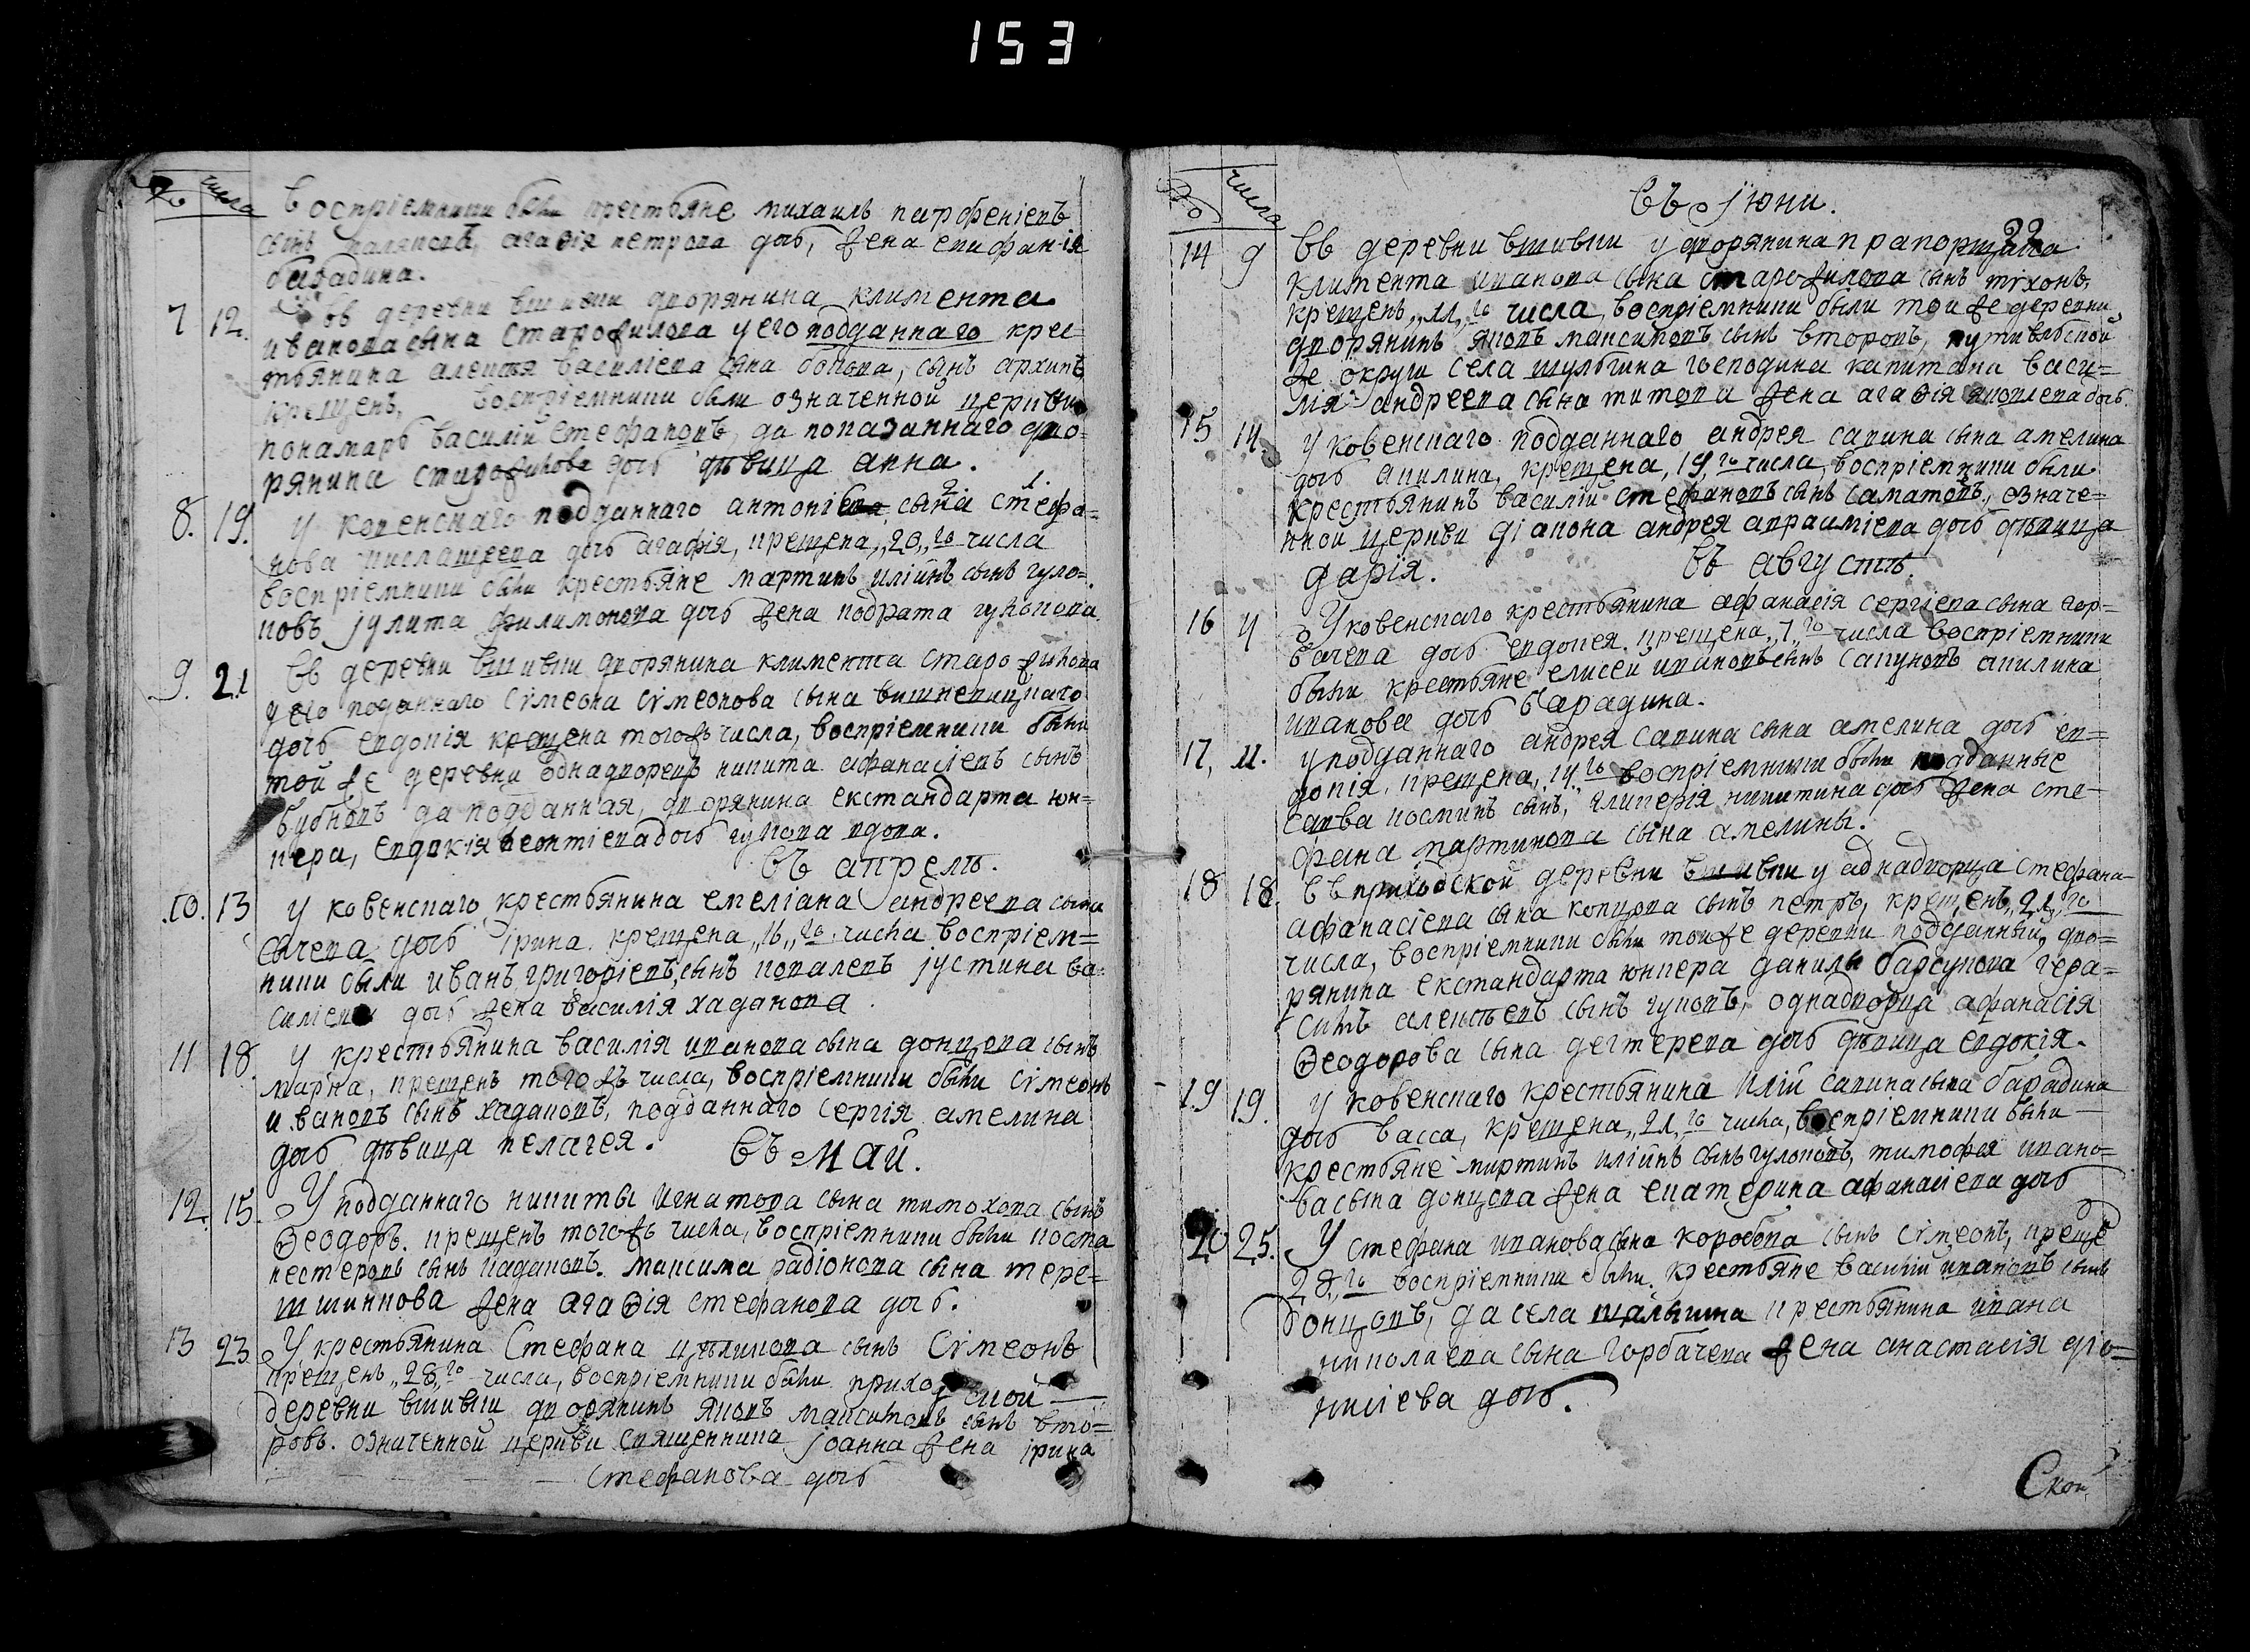 153
№ числа
воспріемники были крестьяне михаилъ парфеніевъ
сынъ агаѳія петрова дочь, жена епифанія
барадина.
7 12. въ деревни вшивки дворянина климента
иванова сына старожилова у его подданнаго крес-
тьянина алеѯѣя василіева сына бокова, сынъ архипъ
крещенъ, воспріемники были означенной церкви
понамарь василій стефановъ, да показаннаго дво=
рянина старожилова дочь дѣвица анна.
8. 19. У ковенскаго подданнаго антонія сына стефа=
нова дочь агафія, крещена, 20,, го числа
воспріемники были крестьяне мартинъ илійнъ сынъ гуло=
ковъ іулита филимонова дочь жена кодрата гулокова
9. 21 въ деревни вшивки дворянина климента старожилова
у его поданнаго сѵмеона сѵмеонова сына вишневицкаго
дочь евдокія крещена тогожъ числа, воспріемники были
той же деревни однадворецъ никита афанасіевъ сынъ
бубновъ да подданная, дворянина екстандарта юн=
кера, евдокія леонтіева дочь гукова вдова.
въ апрелѣ.
10. 13 У ковенскаго крестьянина емеліана андреева сына
сычева дочь ірина крещена,, 16,, го числа воспріем=
ники были иванъ григоріевъ, сынъ ковалевъ іустина ва=
силіева дочь жена василія хаданова.
11 18. У крестьянина василія иванова сына донцова сынъ
марка, крещенъ тогожъ числа, воспріемники были сѵмеонъ
ивановъ сынъ хадановъ, подданнаго сергія амелина
дочь дѣвица пелагея.
въ май.
12. 15. У подданнаго никиты игнатова сына тимохова сынъ
ѳеодоръ. крещенъ тогожъ числа, воспріемники были коста
нестеровъ сынъ хадановъ. максима радіонова сына тере=
шшинкова жена агаѳія стефанова дочь.
13 23. У крестьянина Стефана цѣликова сынъ Сѵмеонъ
крещенъ,, 28,, го числа, воспріемники были приходской
деревни вшивки дворянинъ яковъ максимовъ сынъ вто=
ровъ. означенной церкви священника іоанна жена ірина
стефанова дочь
№ числа
Въ іюни.
22
14 9 Въ деревни вшивки у дворянина прапорщика
климента иванова сына старожилова сынъ тіхонъ,
крещенъ,, 11,, го числа, воспріемники были той же деревни
дворянинъ яковъ максимовъ сынъ второвъ, путивльской
же округи села шульгина господина капитана васи=
лія андреева сына титова жена агаѳія яковлева дочь.
15 14. У ковенскаго подданнаго андрея савина сына амелина
дочь акилина, крещена, 19, го числа, воспріемники были
крестьянинъ василій стефановъ сынъ саматовъ, означе=
нной церкви діакона андрея авраамиева дочь дѣвица
дарія.
въ августѣ.
16 4 У ковенскаго крестьянина афанасія сергіева сына гор=
бачева дочь евдокея крещена,, 7,, го числа воспріемники
были крестьяне елисей ивановъ сынъ сапуновъ акилина
иванова дочь барадина.
17, 11. у подданнаго андрея савина сына амелина дочь ев=
докія, крещена, 14,, го воспріемники были подданные
савва косминъ сынъ, гликерія никитина дочь жена сте-
фана мартинова сына амелины.
18 18. въ приходской деревни вшивки у аднадворца стефана
афанасіева сына копцова сынъ петръ, крещенъ,, 21,, го
числа, воспріемники были тойже деревни подданный, дво=
рянина екстандарта юнкера данилы барсукова гера=
симъ алеѯѣевъ сынъ гуковъ, однадворца афанасія
ѳеодорова сына дегтерева дочь дѣвица евдокія.
19 19. У ковенскаго крестьянина илій савина сына барадина
дочь васса, крещена,, 21,, го числа, воспріемники были
крестьяне мартинъ илійнъ сынъ гулоковъ, тимофея ивано=
ва сына донцова жена екатерина афанасіева дочь
20 25. У стефана иванова сына коробова сынъ сѵмеонъ, креще
28,, го воспріемники были. крестьяне василій ивановъ сынъ
донцовъ, да села крестьянина ивана
николаева сына горбачева жена анастасія діо=
нисіева дочь.
Скои